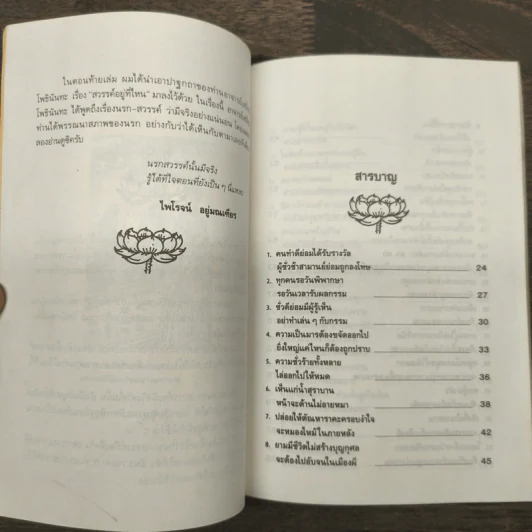 ในตอนท้ายเล่ม ผมได้นำเอาปาฐกถาของท่านอาจารย์
โพธินันทะ เรื่อง "สวรรค์อยู่ที่ไหน" มาลงไว้ด้วย ในเรื่องนี้
โพธินันทะ ได้พูดถึงเรื่องนรก-สวรรค์ ว่ามีจริงอย่างแน่นอน
ท่านได้พรรณนาสภาพของนรก อย่างกับว่าได้เห็นกับตามา
ลองอ่านดูซิครับ
นรกสวรรค์นั้นมีจริง
รู้ได้ที่ใจตอนที่ยังเป็น ๆ
ไพโรจน์ อยู่มณเฑียร
สารบาญ
1. คนทำดีย่อมได้รับรางวัล
ผู้ชั่วช้าสามานย์ย่อมถูกลงโทษ 24
2. ทุกคนรอวันพิพากษา
รอวันเวลารับผลกรรม 27
3. ชั่วดีย่อมมีผู้รู้เห็น
อย่าทำเล่น ๆ กับกรรม 30
4. ความเป็นมารต้องขจัดออกไป
ยิ่งใหญ่แค่ไหนก็ต้องถูกปราบ 33
5. ความชั่วร้ายทั้งหลาย
ไล่ออกไปให้หมด 36
6. เห็นแก่น้ำสุราบาน
หน้าจะด้านไม่อายหมา 38
7. ปล่อยให้ตัณหาราคะครอบงำใจ
จะหมองไหม้ในภายหลัง 42
8. ยามมีชีวิตไม่สร้างบุญกุศล
จะต้องไปอับจนในเมืองผี 45